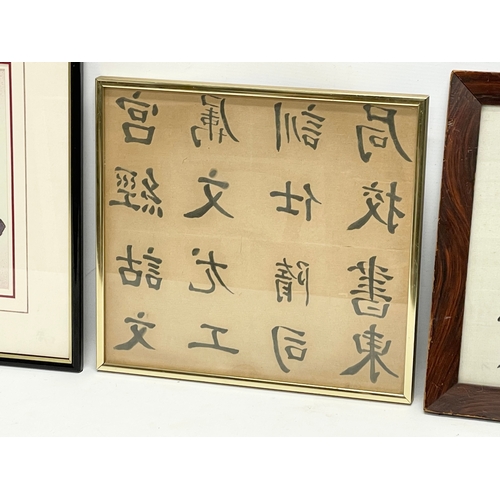 局校書東
訓仕隋司
属文尤工
宮經詁文